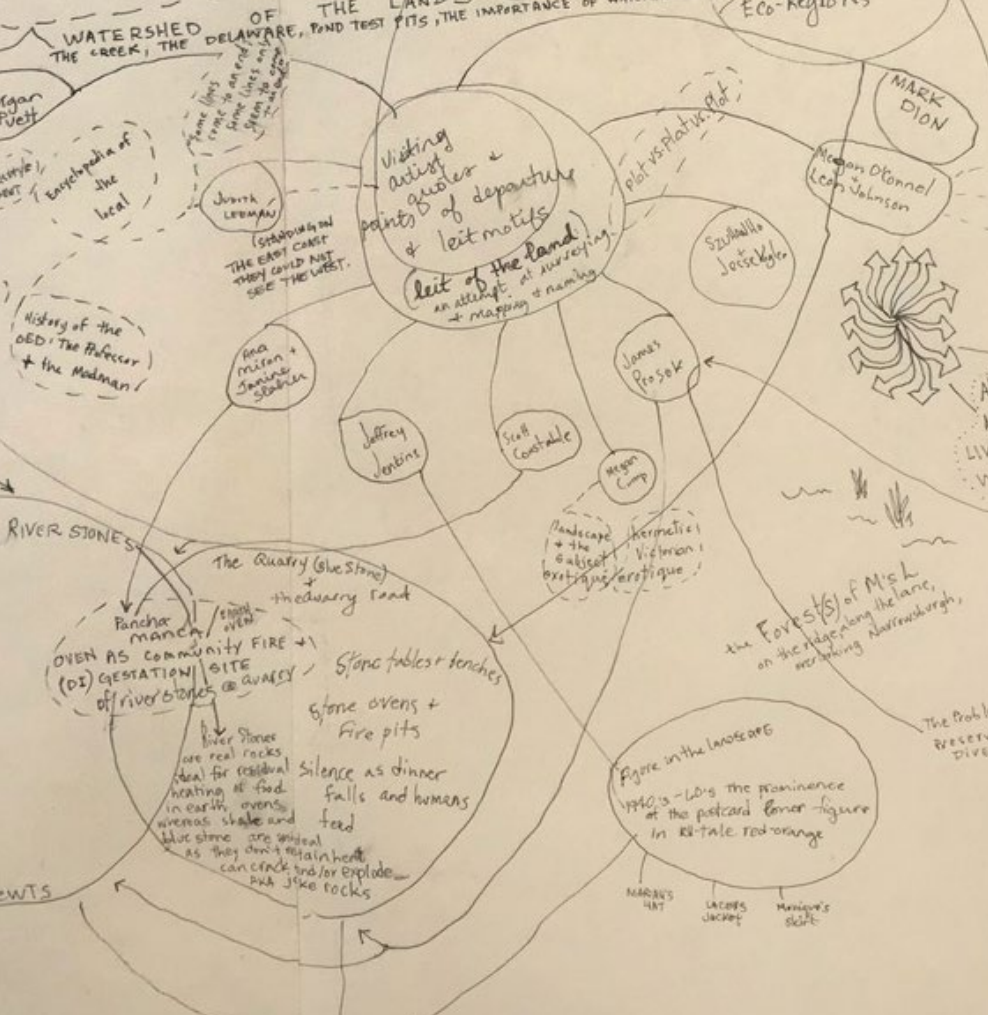 WATERSHED OF THE LAND
THE CREEK, THE DELAWARE, POND TEST PITS, THE IMPORTANCE OF
ECO-REGIONS
MARK
DION
Some lines
come to an end
some lines only
seem to come
Encyclopedia of
the
local
Judith
LEEMAN
(STANDING ON
THE EAST COAST
THEY COULD NOT
SEE THE WEST.
Visiting
artist
quotes +
points of departure
+ leit motifs
(leit of the land)
an attempt at surveying
+ mapping + naming
Plot vs. Plat vs. Plot
Megan O'Connel
+
Leon Johnson
History of the
OED: The Professor
+ the Madman
Ana
Miron +
Janine
Jeffrey
Jenkins
Scott
Constable
Megan
James
Prosek
landscape
+ the
subject
exotique/erotique
hermetic
Victorian
RIVER STONES
The Quarry (Blue Stone)
+
the quarry road
Pancha
manca / EARTH
OVEN
OVEN AS community FIRE +
(DI)GESTATION SITE
of river stones @ quarry
Stone tables + benches
Stone ovens +
fire pits
Silence as dinner
falls and humans
feed
River Stones
are real rocks
ideal for residual
heating of food
in earth ovens
whereas shale and
blue stone are
as they don't retain heat
can crack and/or explode
AKA joke rocks
the Forest(s) of M's L
on the ridge, along the lane,
overlooking Narrowsburgh,
figure in the landscape
the prominence
of the postcard
in red-orange
HAT
JACKET
Monique's
skirt